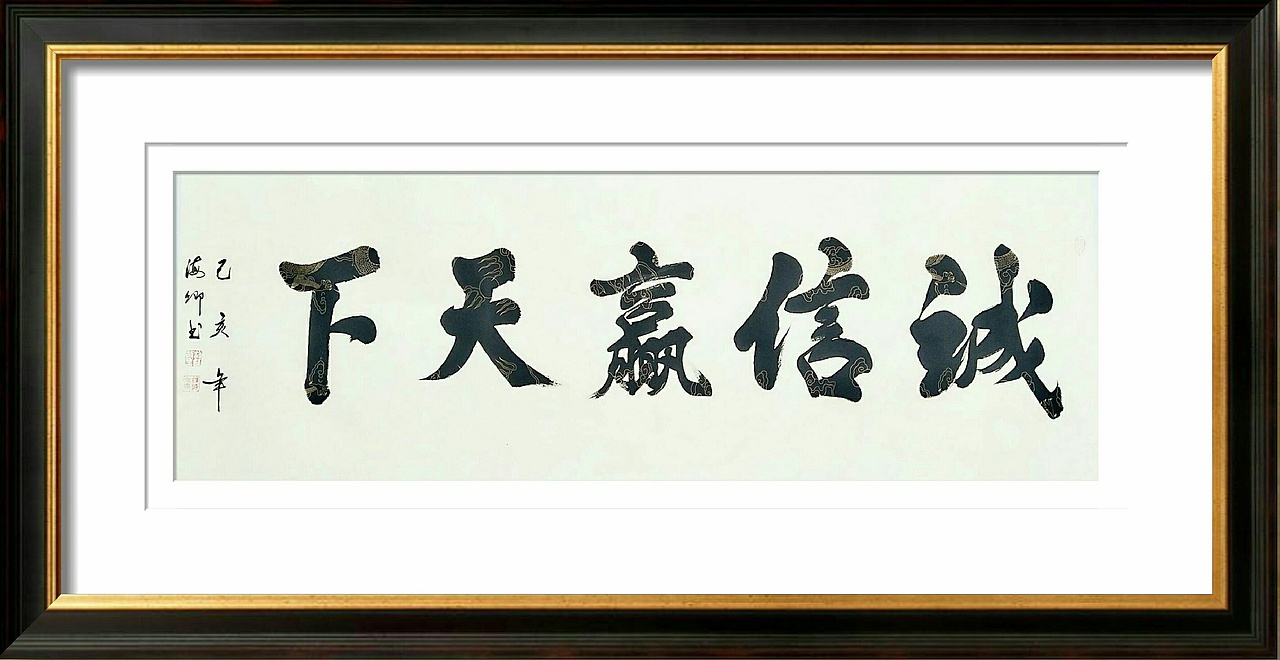 誠信赢天下
己亥年
海卿书